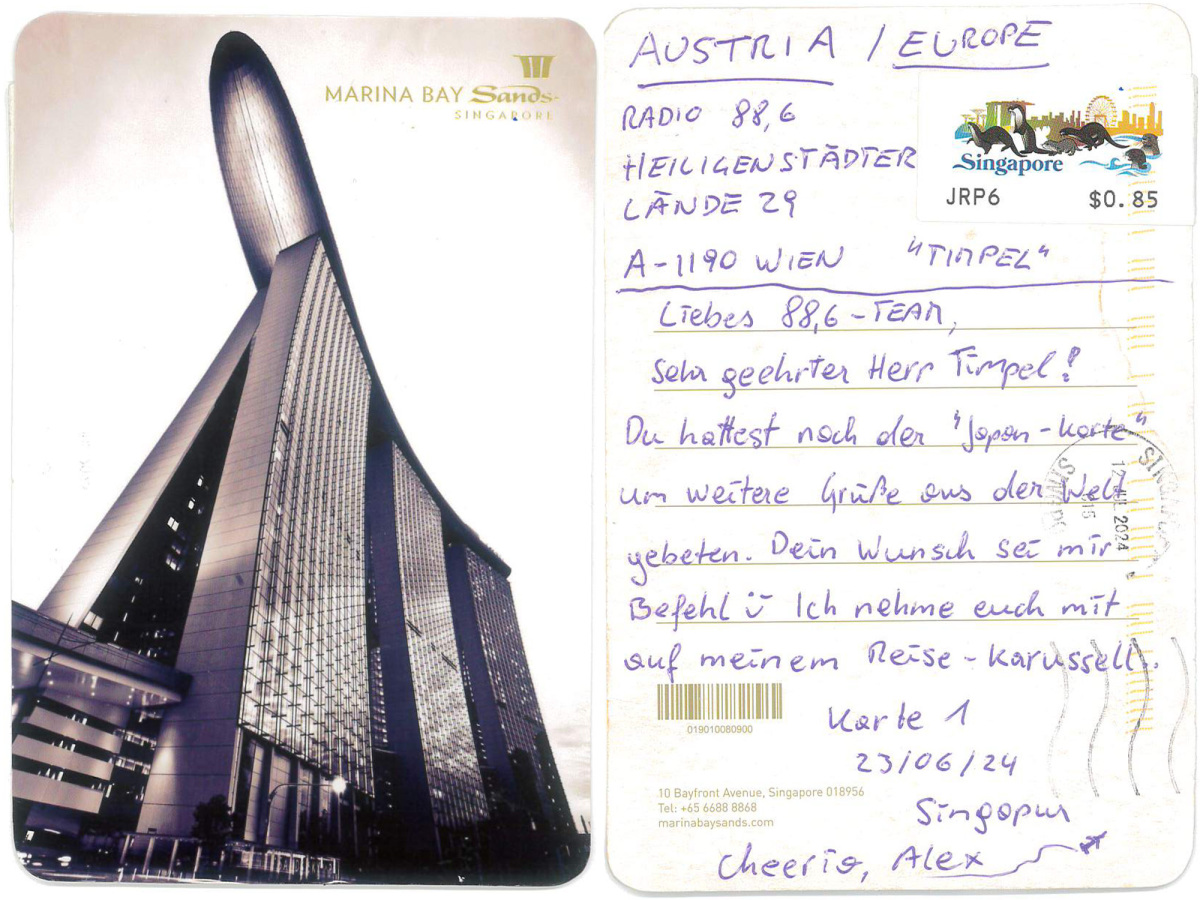 MARINA BAY Sands
SINGAPORE
AUSTRIA / EUROPE
RADIO 88,6
HEILIGENSTÄDTER
LÄNDE 29
A-1190 WIEN "TIMPEL"
Singapore
JRP6 $0.85
Liebes 88,6-TEAM,
Sehr geehrter Herr Timpel!
Du hattest nach der "Japan-Karte"
um weitere Grüße aus der Welt
gebeten. Dein Wunsch sei mir
Befehl ü Ich nehme euch mit
auf meinem Reise-Karussell.
2024
019010080900
Karte 1
23/06/24
Singapur
10 Bayfront Avenue, Singapore 018956
Tel: +65 6688 8868
marinabaysands.com
Cheerio, Alex